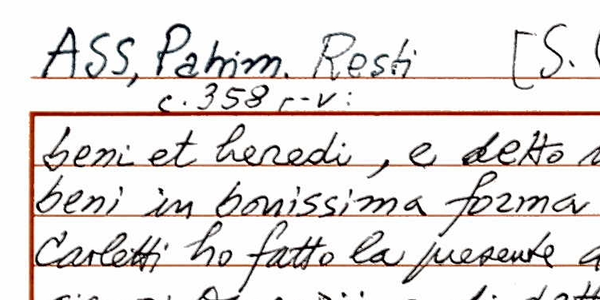 ASS, Patrim. Resti [S.
c. 358 r-v:
beni et heredi, e detto
beni in bonissima forma
Carletti ho fatto la presente